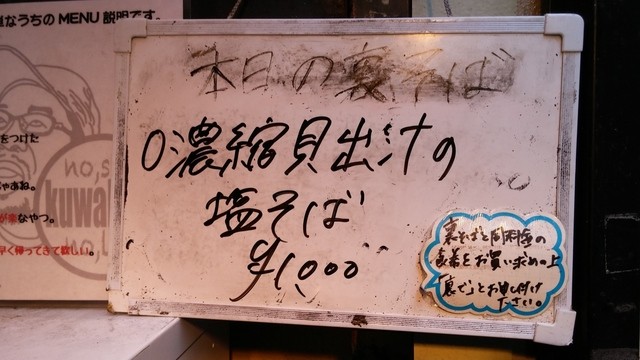 なうちの MENU 説明です。
をつけた
no,s
kuwa
なやつ。
早く帰ってきて欲しい。
本日の裏そば
○濃縮貝出汁の
塩そば
¥1,000
裏そばと同料金の
食券をお買い求めの上
「裏で」とお申し付け
ください。